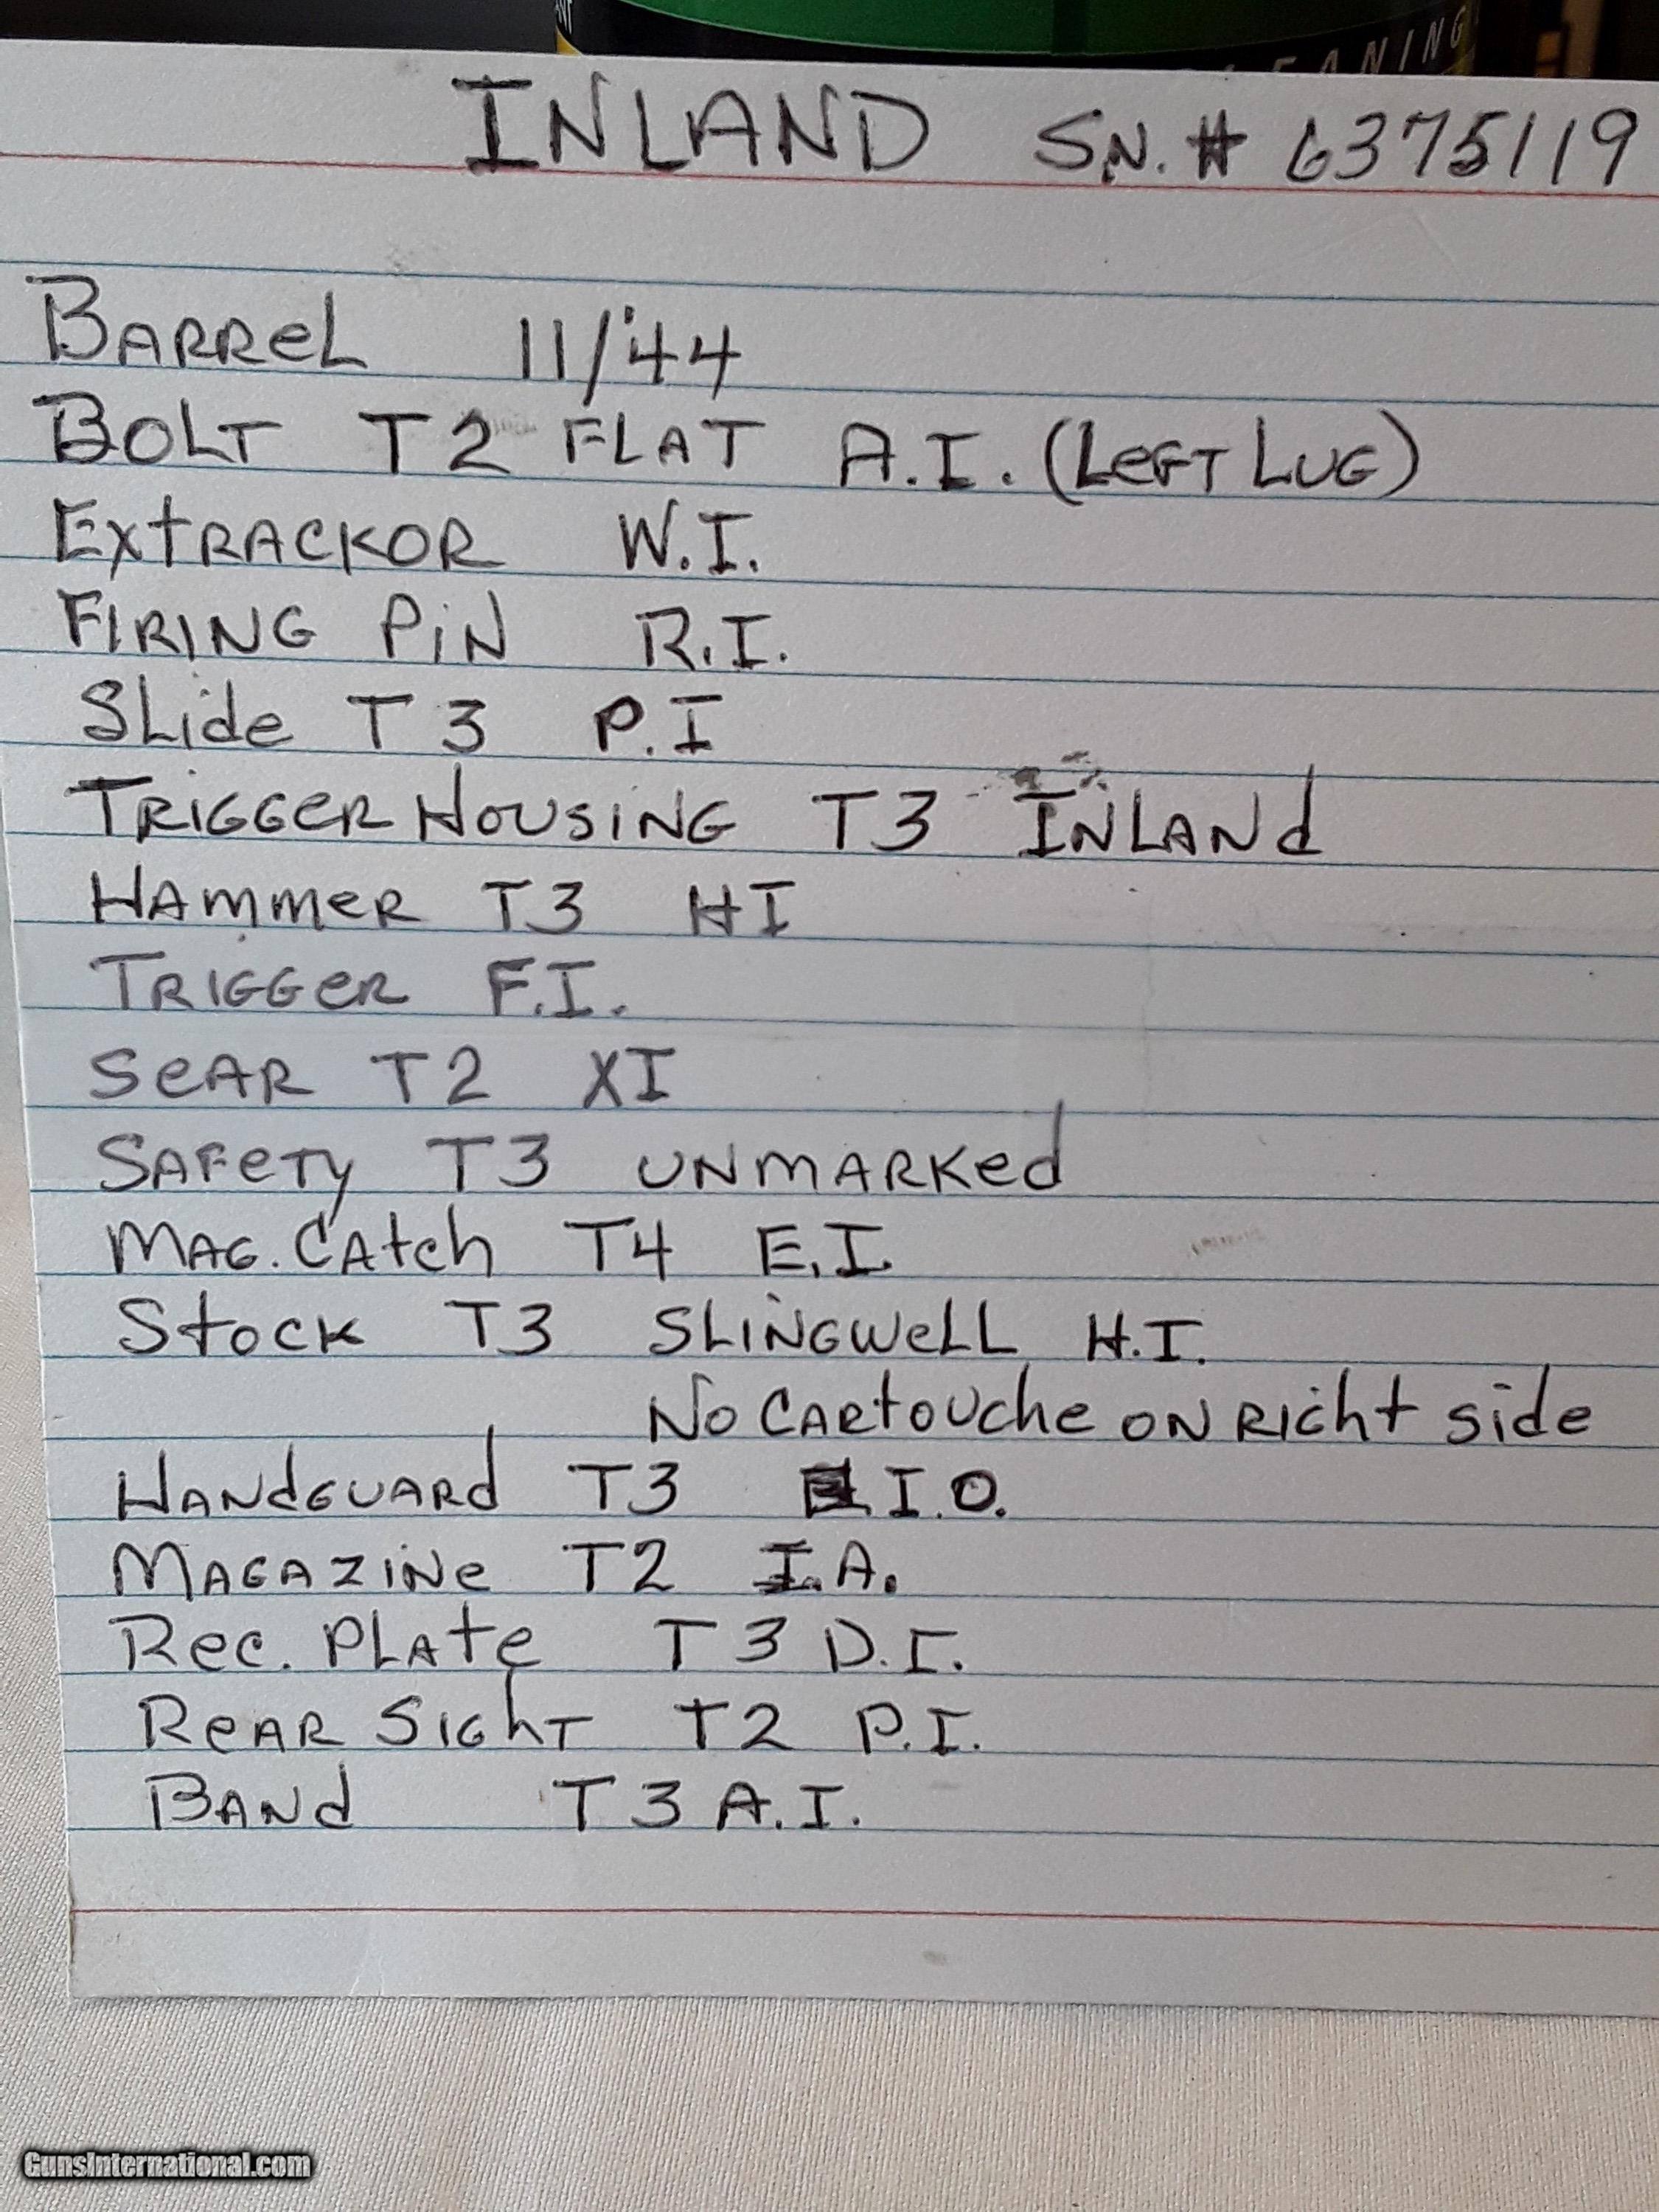 CLEANING
INLAND SN. # 6375119
BARReL 11/44
BOLT T2 FLAT A.I. (LeFT LUG)
ExtRACKOR W.I.
FIRING PiN R.I.
SLide T3 P.I
TRiGGeR HousiNG T3 INLANd
HAmmeR T3 HI
TRIGGeR F.I.
SeAR T2 XI
SAFeTy T3 UNMARKed
MAG. CAtch T4 E.I.
Stock T3 SLiNGWeLL H.I.
No CARtouche ON RIGht side
HANdGUARd T3 I.O.
MAGAZiNe T2 I.A.
Rec. PLAte T3 D.I.
ReAR SIGhT T2 P.I.
BANd T3 A.I.
GunsInternational.com